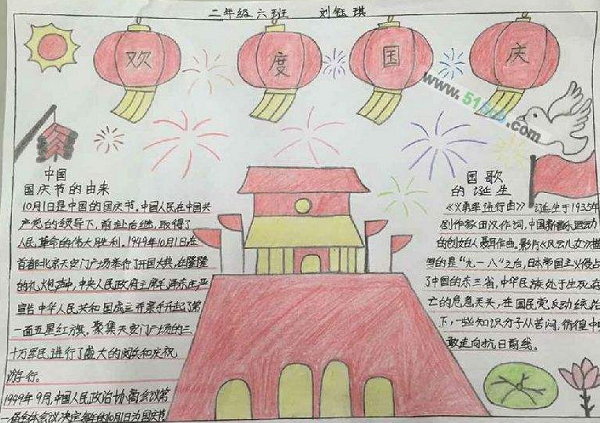 二年级六班 刘钰琪
欢度国庆
www.51
.com
中国
国庆节的由来
10月1日是中国的国庆节,中国人民在中国共
产党的领导下,前赴后继,取得了
人民革命的伟大胜利,1949年10月1日,在
首都北京天安门广场举行了开国大典,在隆隆
的礼炮声中,中央人民政府主席毛泽东庄严
宣告中华人民共和国成立并亲手升起了第
一面五星红旗,聚集天安门广场的三
十万军民进行了盛大的阅兵和庆祝
游行。
1949年9月,中国人民政治协商会议第
一届会议决定每年的10月1日为国庆节
国歌
的诞生
《义勇军进行曲》诞生于1935年
创作教田汉作词,中国新音乐运动
的创始人聂耳作曲,影片《风云儿女》描
的是"九一八"之后,日本帝国主义侵占
了中国的东三省,中华民族处于生死存
亡的危急关头,在国民党反动统治
下,一些知识分子从苦闷,彷徨中
敢走向抗日前线。